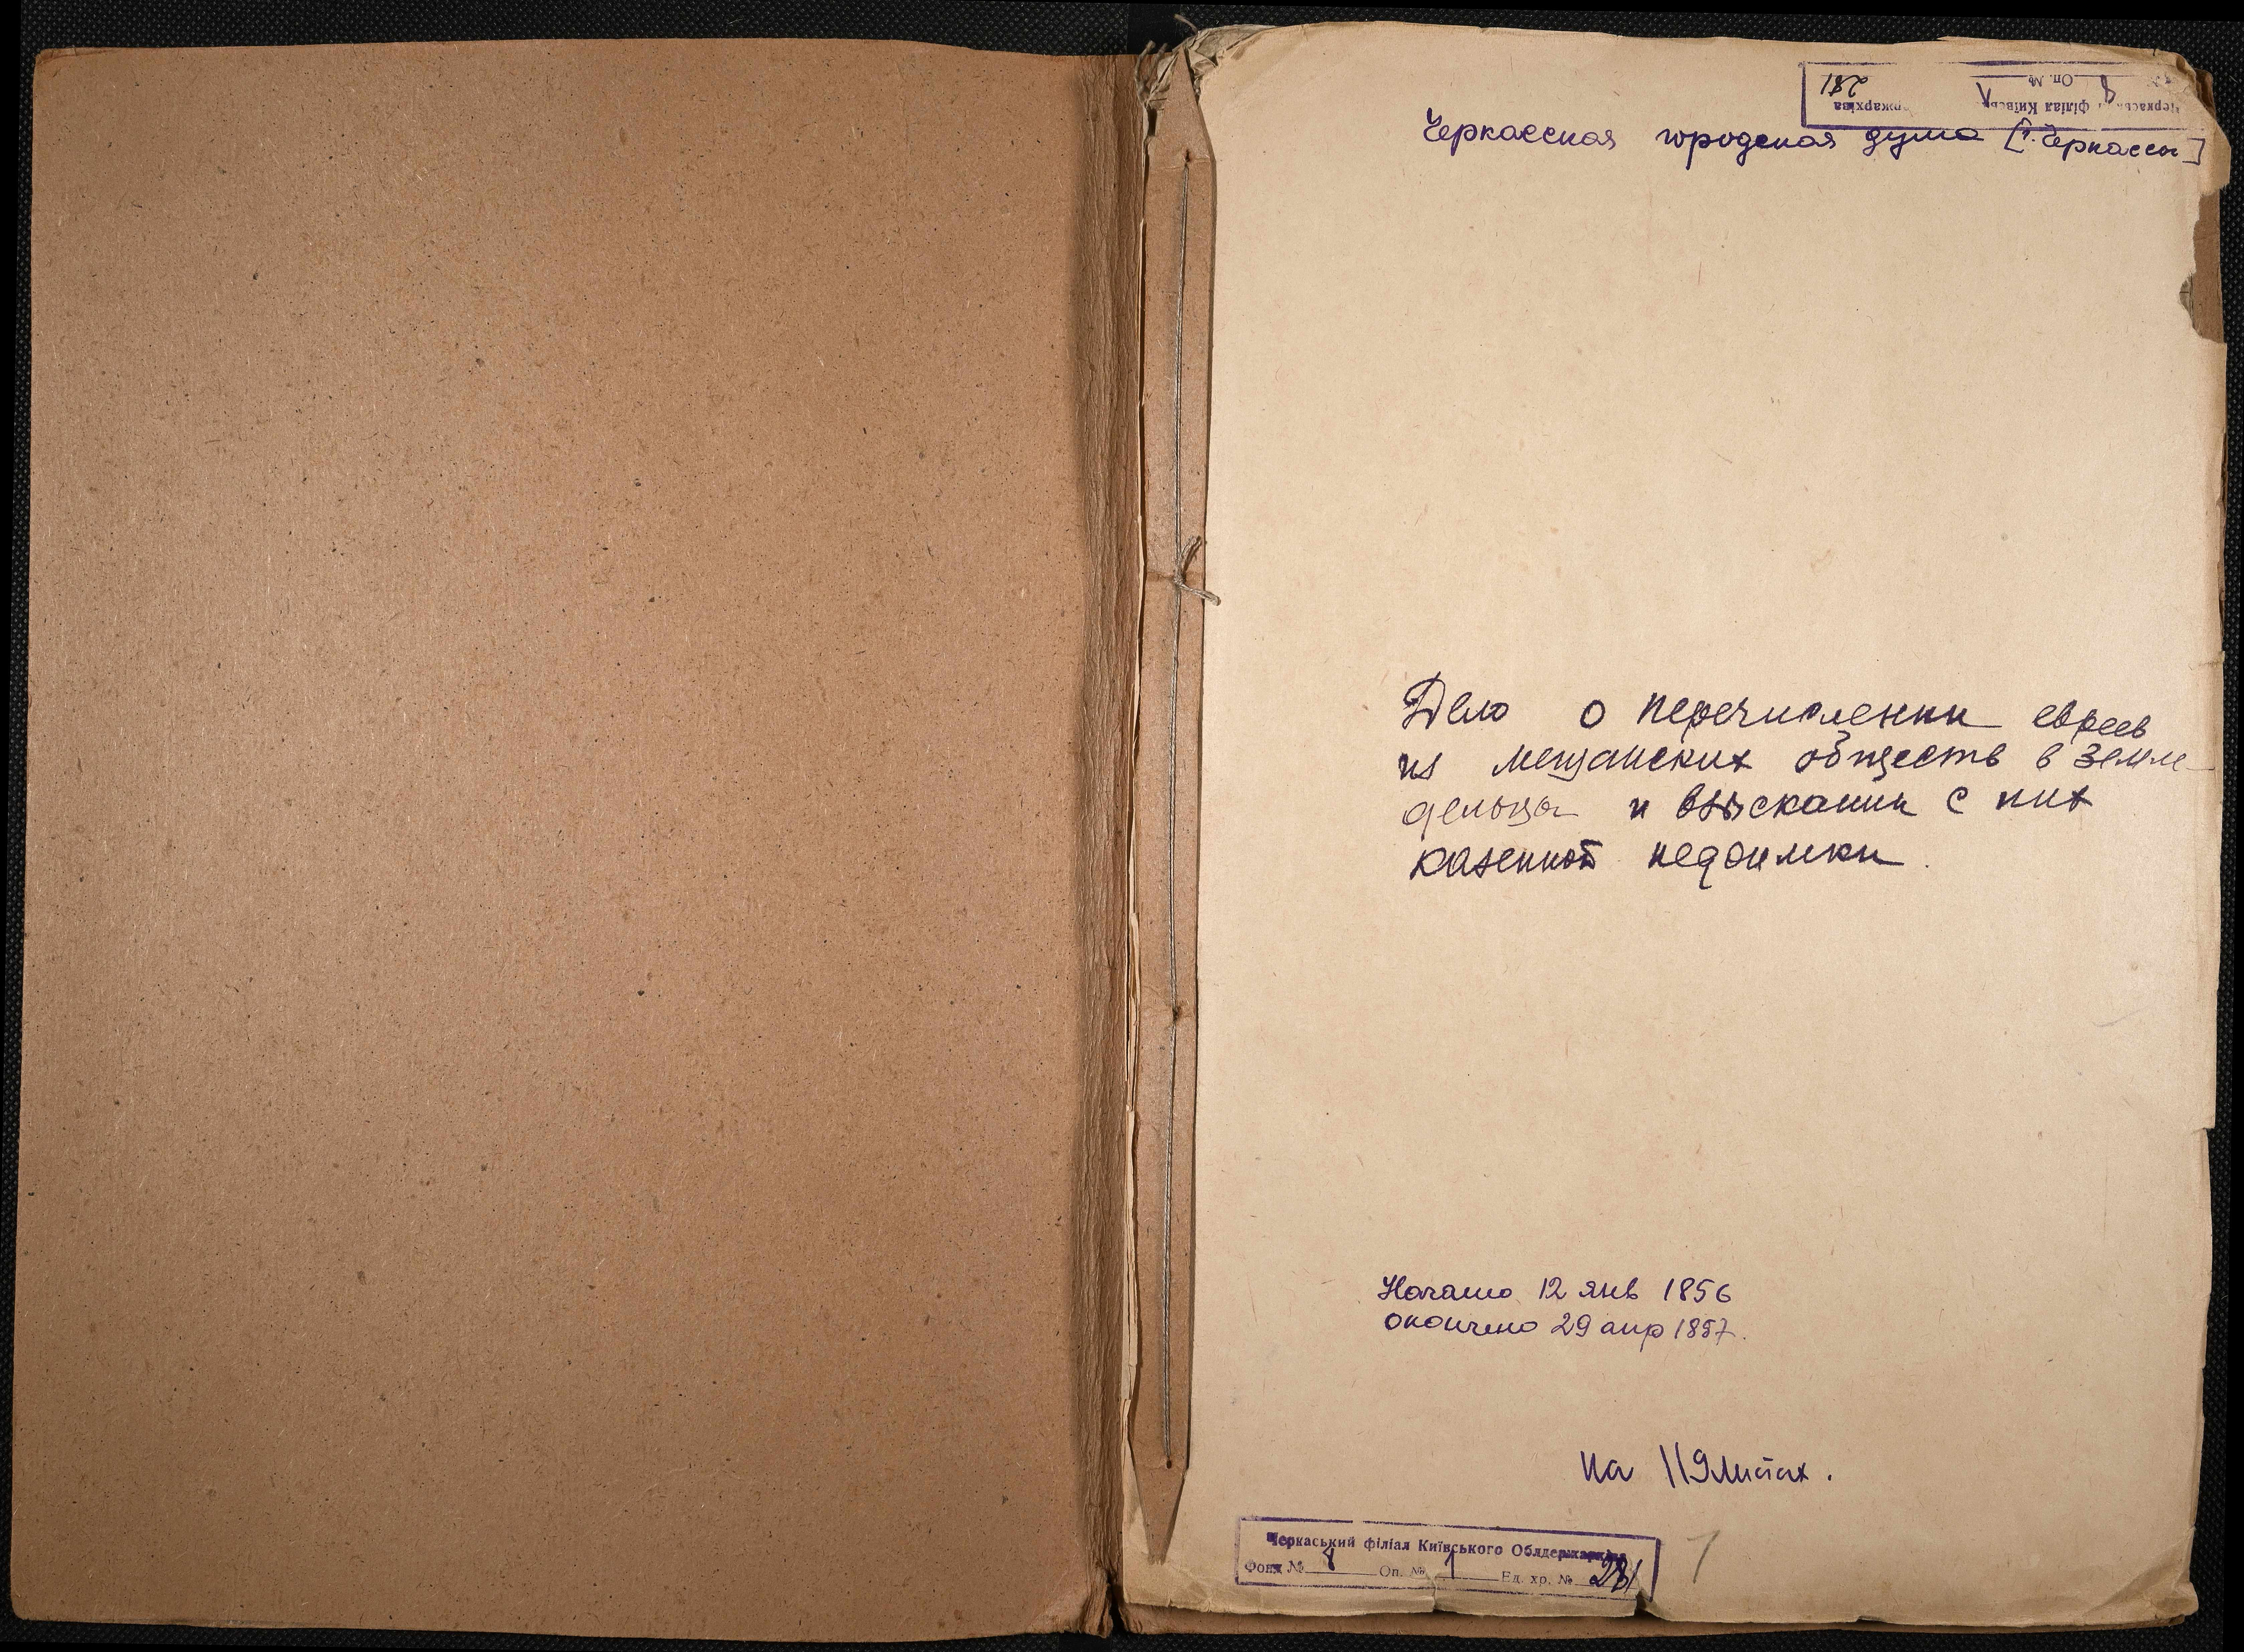 Черкаський філіал Київськ держархіва
8 Оп. № 1 281
Черкасская городская дума [г. Черкассы]
Дело о перечислении евреев
из мещанских обществ в земле-
дельцы и взыскании с них
казенной недоимки.
Начато 12 янв 1856
окончено 29 апр 1857.
на 119 листах.
Черкаський філіал Київського Облдержархіва
Фонд № 8 Оп. № 1 Ед. хр. № 281
1